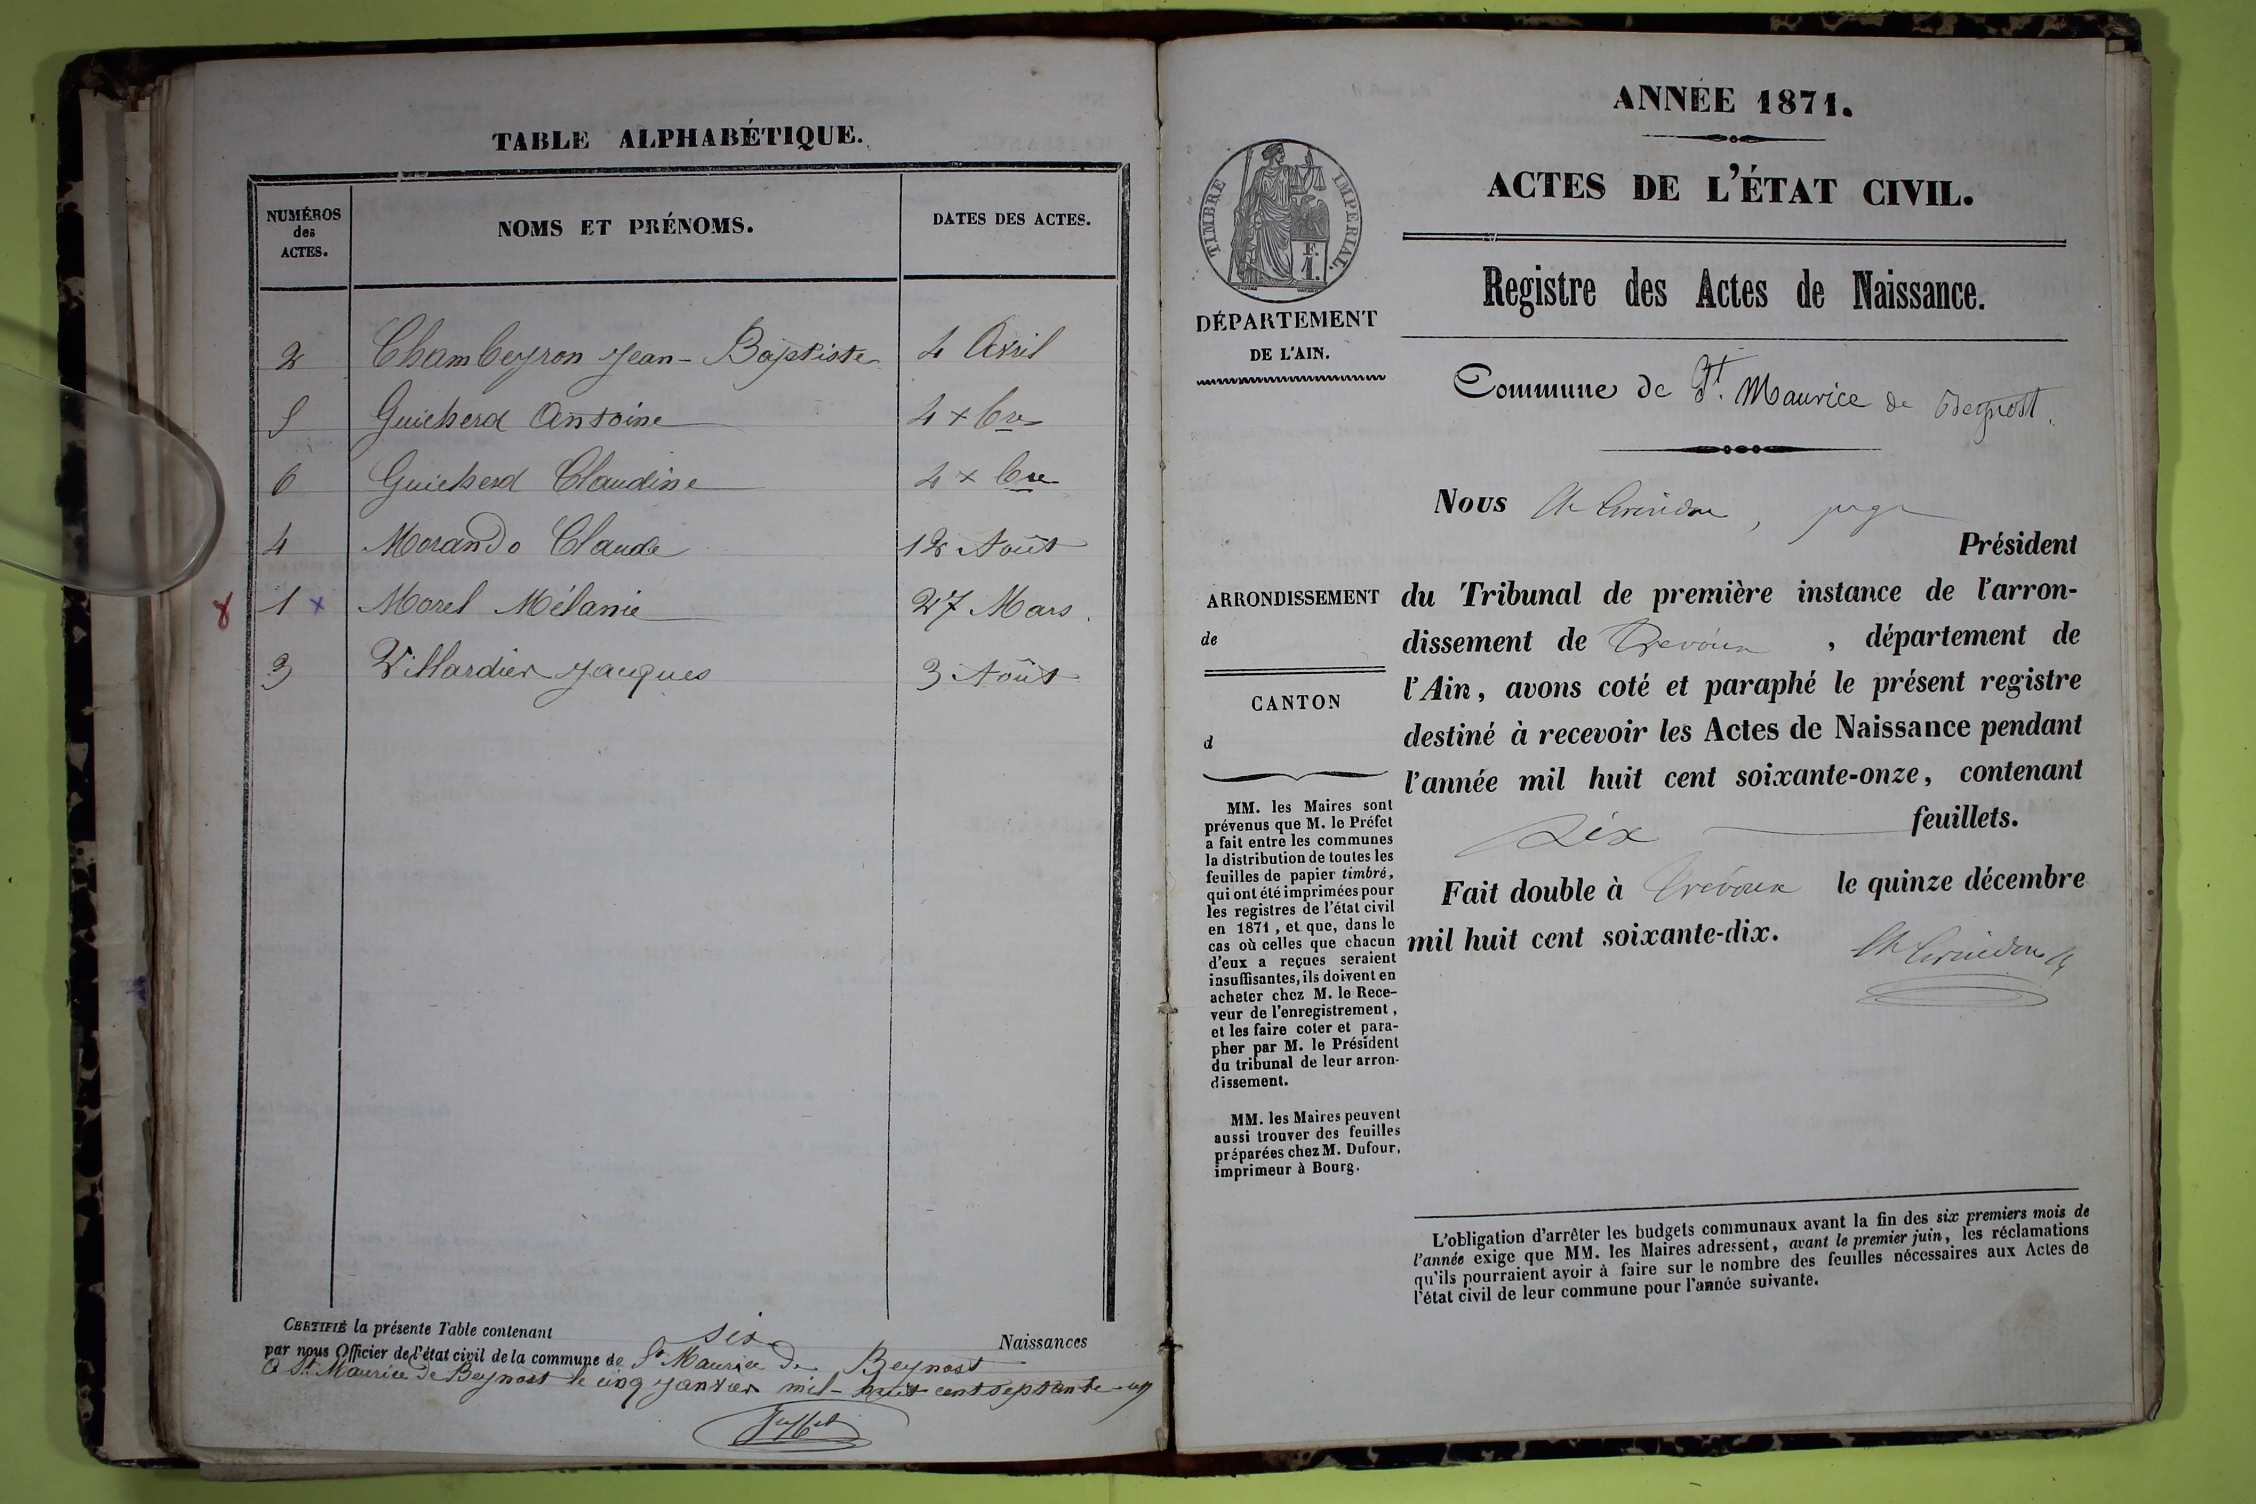 TABLE ALPHABÉTIQUE.
NUMÉROS
des
ACTES.
NOMS ET PRÉNOMS.
DATES DES ACTES.
2 Chambeyron Jean-Baptiste 4 Avril
5 Guicherd Antoine 4 Xbre
6 Guicherd Claudine 4 Xbre
4 Morando Claude 12 Août
1 x Morel Mélanie 27 Mars.
3 Villardier Jacques 3 Août
CERTIFIÉ la présente Table contenant six Naissances
par nous Officier de l'état civil de la commune de St Maurice de Beynost
A St Maurice de Beynost le cinq janvier mil-huit cent septante-un
ANNÉE 1871.
ACTES DE L'ÉTAT CIVIL.
Registre des Actes de Naissance.
TIMBRE IMPÉRIAL.
F.
1.
DÉPARTEMENT
DE L'AIN.
Commune de St. Maurice de Beynost.
Nous , juge
Président
ARRONDISSEMENT
de
CANTON
d
du Tribunal de première instance de l'arron-
dissement de Trévoux , département de
l'Ain, avons coté et paraphé le présent registre
destiné à recevoir les Actes de Naissance pendant
l'année mil huit cent soixante-onze, contenant
six feuillets.
Fait double à Trévoux le quinze décembre
mil huit cent soixante-dix.
MM. les Maires sont
prévenus que M. le Préfet
a fait entre les communes
la distribution de toutes les
feuilles de papier timbré,
qui ont été imprimées pour
les registres de l'état civil
en 1871, et que, dans le
cas où celles que chacun
d'eux a reçues seraient
insuffisantes, ils doivent en
acheter chez M. le Rece-
veur de l'enregistrement,
et les faire coter et para-
pher par M. le Président
du tribunal de leur arron-
dissement.
MM. les Maires peuvent
aussi trouver des feuilles
préparées chez M. Dufour,
imprimeur à Bourg.
L'obligation d'arrêter les budgets communaux avant la fin des six premiers mois de
l'année exige que MM. les Maires adressent, avant le premier juin, les réclamations
qu'ils pourraient avoir à faire sur le nombre des feuilles nécessaires aux Actes de
l'état civil de leur commune pour l'année suivante.